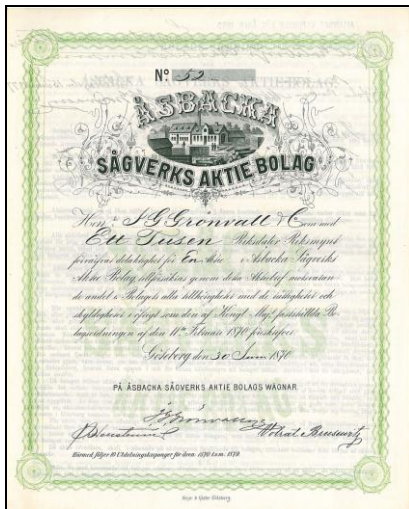 Nº 52
ÅSBACKA
SÅGVERKS AKTIE BOLAG
Herr J G Grönvall & C som med
Ett Tusen Riksdaler Riksmynt
förvärfvat delaktighet för En Aktie i Åsbacka Sågverks
Aktie Bolag tillförsäkras genom detta Aktiebref motsvaran-
de andel i Bolagets alla tillhörigheter med de rättigheter och
skyldigheter i öfrigt som den af Kongl. Maj:t fastställda Bo-
lagsordningen af den 11te Februari 1870 föreskrifver.
Göteborg den 30 Juni 1870
PÅ ÅSBACKA SÅGVERKS AKTIE BOLAGS WÄGNAR.
J G Grönvall
Wolrat Breusewitz
Härmed följer 10 Utdelningskuponger för åren 1870 t.o.m. 1879
Göteborg